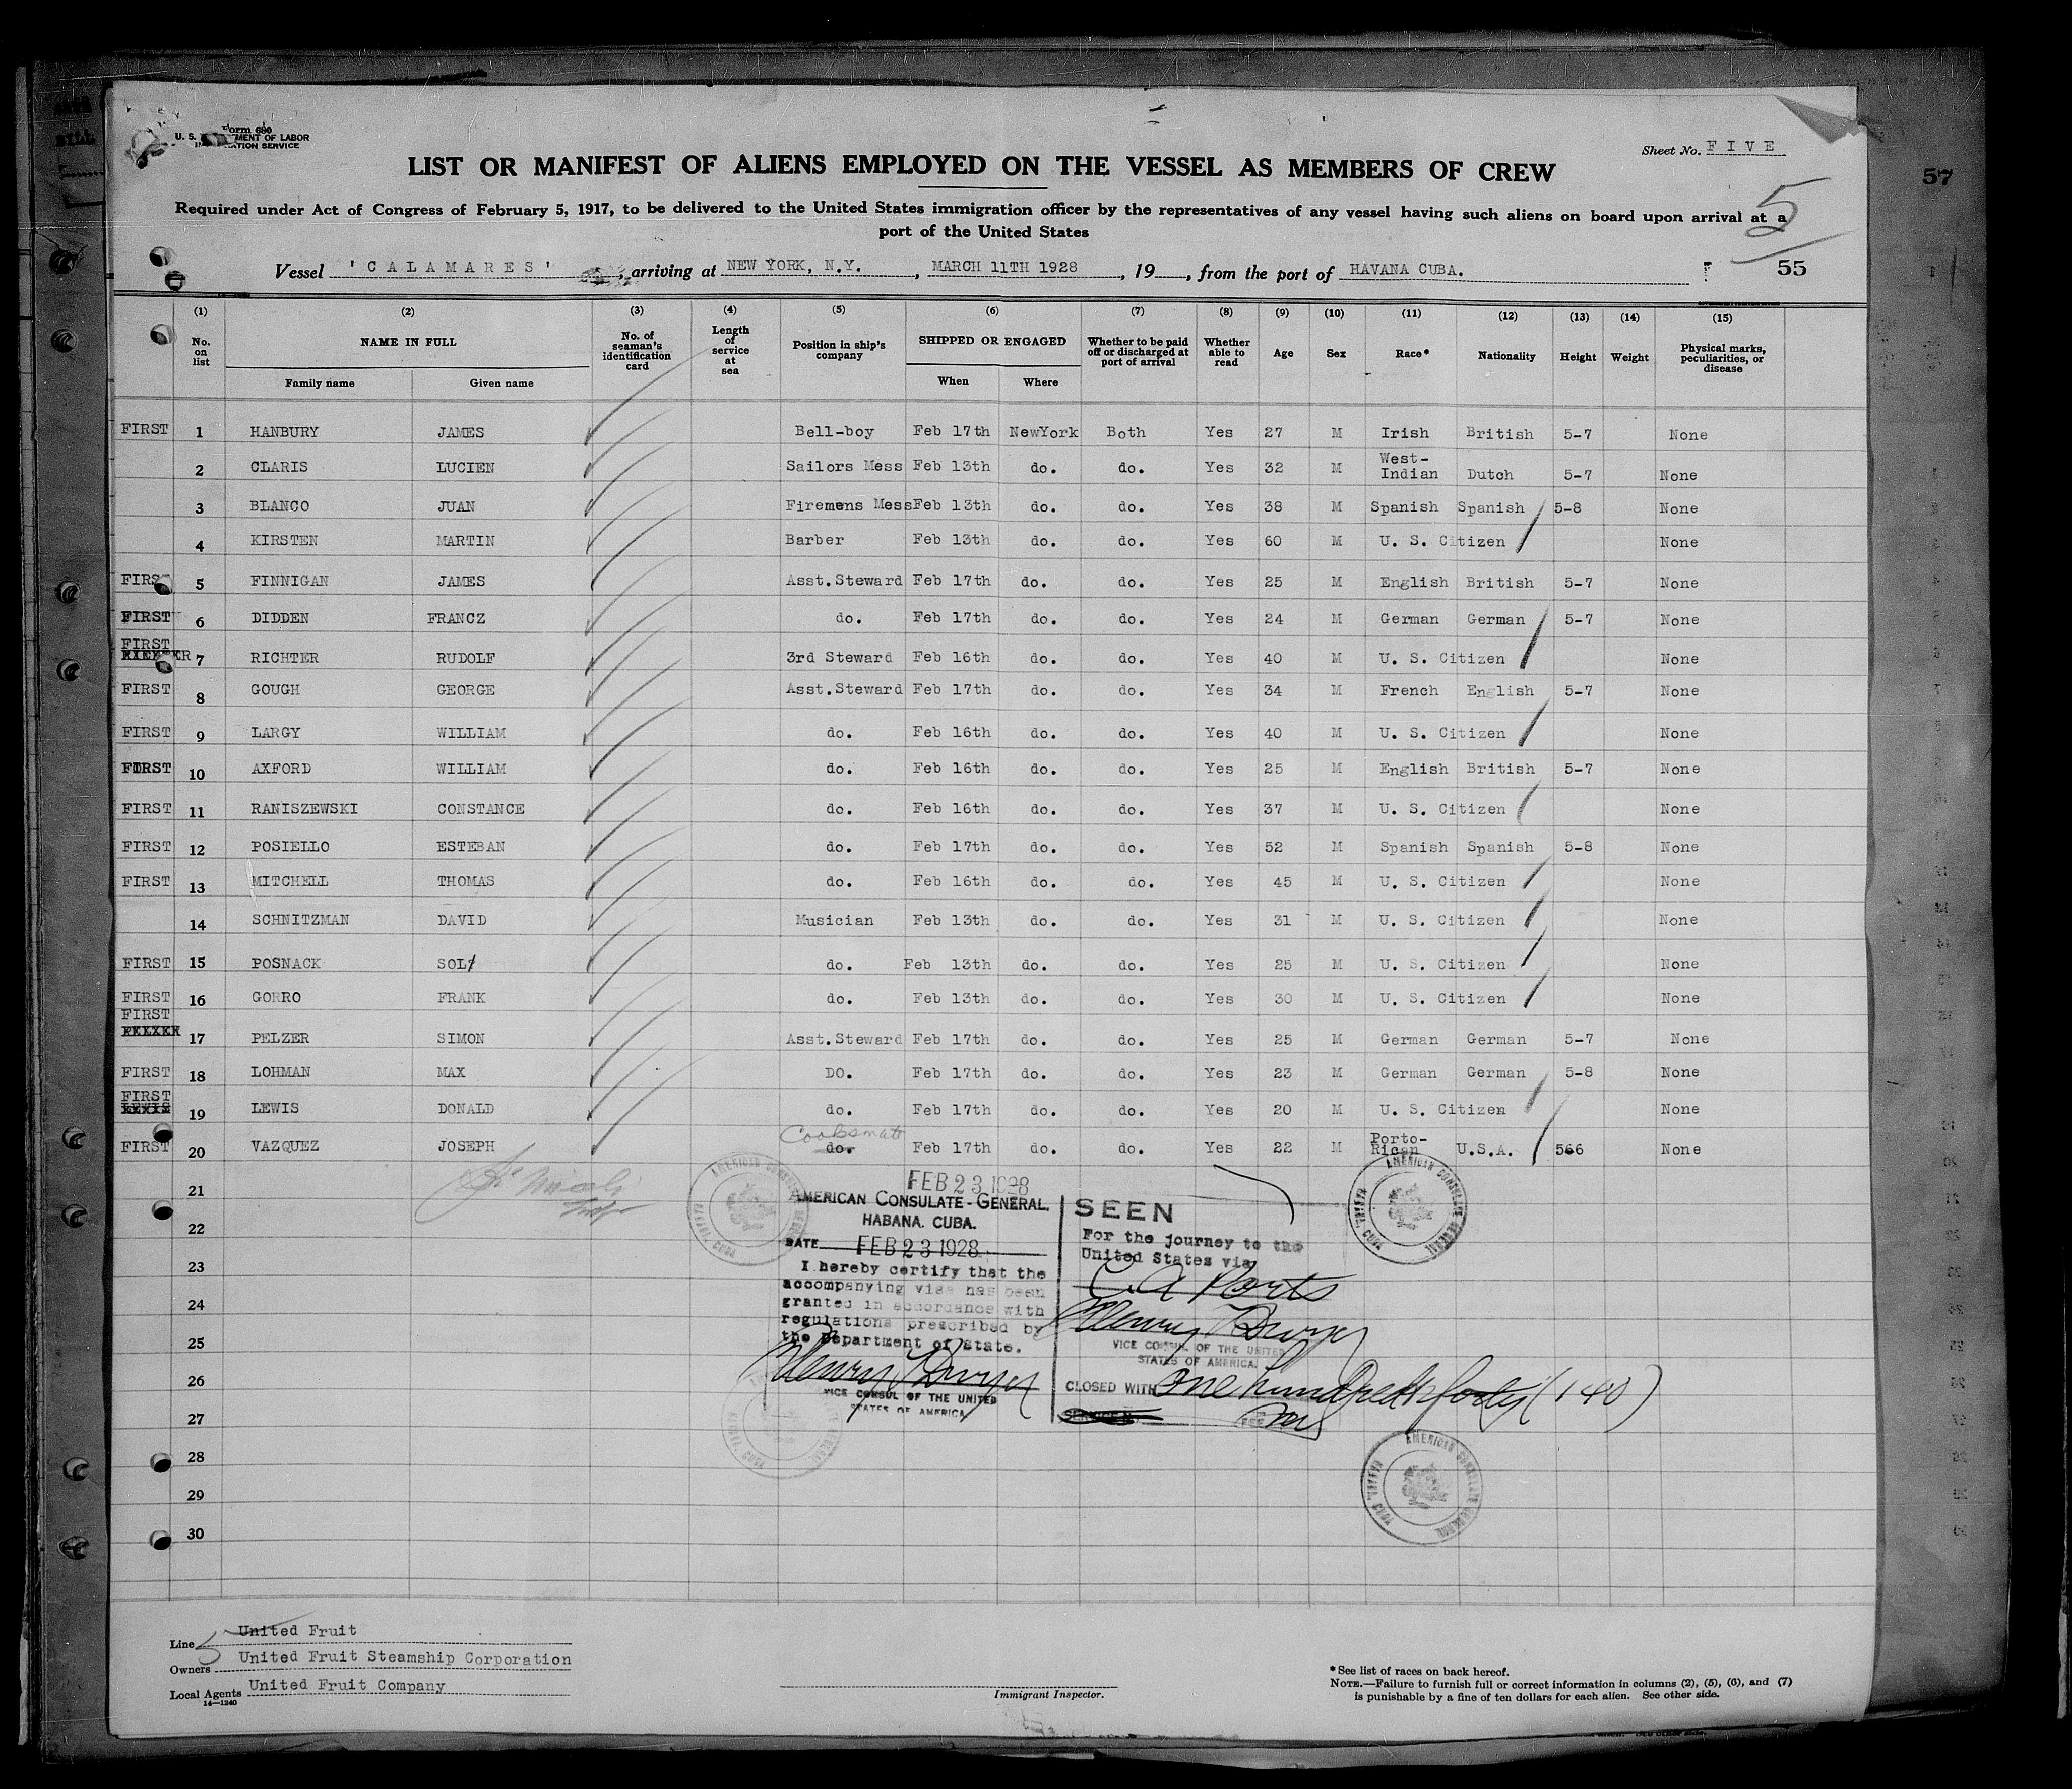 Form 680
U. S. MENT OF LABOR
ATION SERVICE
Sheet No. FIVE
LIST OR MANIFEST OF ALIENS EMPLOYED ON THE VESSEL AS MEMBERS OF CREW
5
57
Required under Act of Congress of February 5, 1917, to be delivered to the United States immigration officer by the representatives of any vessel having such aliens on board upon arrival at a
port of the United States
Vessel 'CALAMARES', arriving at NEW YORK, N.Y., MARCH 11TH 1928, 19, from the port of HAVANA CUBA. 55
(1) (2) (3) (4) (5) (6) (7) (8) (9) (10) (11) (12) (13) (14) (15)
No. on list NAME IN FULL No. of seaman's identification card Length of service at sea Position in ship's company SHIPPED OR ENGAGED Whether to be paid off or discharged at port of arrival Whether able to read Age Sex Race* Nationality Height Weight Physical marks, peculiarities, or disease
Family name Given name When Where
FIRST 1 HANBURY JAMES Bell-boy Feb 17th NewYork Both Yes 27 M Irish British 5-7 None
2 CLARIS LUCIEN Sailors Mess Feb 13th do. do. Yes 32 M West-Indian Dutch 5-7 None
3 BLANCO JUAN Firemens Mess Feb 13th do. do. Yes 38 M Spanish Spanish 5-8 None
4 KIRSTEN MARTIN Barber Feb 13th do. do. Yes 60 M U. S. Citizen None
FIRST 5 FINNIGAN JAMES Asst.Steward Feb 17th do. do. Yes 25 M English British 5-7 None
FIRST 6 DIDDEN FRANCZ do. Feb 17th do. do. Yes 24 M German German 5-7 None
FIRST 7 RICHTER RUDOLF 3rd Steward Feb 16th do. do. Yes 40 M U. S. Citizen None
FIRST 8 GOUGH GEORGE Asst.Steward Feb 17th do. do. Yes 34 M French English 5-7 None
FIRST 9 LARGY WILLIAM do. Feb 16th do. do. Yes 40 M U. S. Citizen None
FIRST 10 AXFORD WILLIAM do. Feb 16th do. do. Yes 25 M English British 5-7 None
FIRST 11 RANISZEWSKI CONSTANCE do. Feb 16th do. do. Yes 37 M U. S. Citizen None
FIRST 12 POSIELLO ESTEBAN do. Feb 17th do. do. Yes 52 M Spanish Spanish 5-8 None
FIRST 13 MITCHELL THOMAS do. Feb 16th do. do. Yes 45 M U. S. Citizen None
14 SCHNITZMAN DAVID Musician Feb 13th do. do. Yes 31 M U. S. Citizen None
FIRST 15 POSNACK SOL do. Feb 13th do. do. Yes 25 M U. S. Citizen None
FIRST 16 GORRO FRANK do. Feb 13th do. do. Yes 30 M U. S. Citizen None
FIRST 17 PELZER SIMON Asst.Steward Feb 17th do. do. Yes 25 M German German 5-7 None
FIRST 18 LOHMAN MAX DO. Feb 17th do. do. Yes 23 M German German 5-8 None
FIRST 19 LEWIS DONALD do. Feb 17th do. do. Yes 20 M U. S. Citizen None
Cooksmate
FIRST 20 VAZQUEZ JOSEPH do. Feb 17th do. do. Yes 22 M Porto-Rican U.S.A. 566 None
21
22
23
24
25
26
27
28
29
30
FEB 23 1928
AMERICAN CONSULATE-GENERAL,
HABANA. CUBA.
DATE FEB 23 1928
I hereby certify that the
accompanying visa has been
granted in accordance with
regulations prescribed by
the Department of State.
Henry T Dwyer
VICE CONSUL OF THE UNITED
STATES OF AMERICA
SEEN
For the journey to the
United States via
C.A Ports
Henry T Dwyer
VICE CONSUL OF THE UNITED
STATES OF AMERICA.
CLOSED WITH one hundred & forty (140)
FEE
AMERICAN CONSULATE GENERAL
HABANA, CUBA
AMERICAN CONSULATE GENERAL
HABANA, CUBA
AMERICAN CONSULATE GENERAL
HABANA, CUBA
HABANA, CUBA
Line United Fruit
5
Owners United Fruit Steamship Corporation
Local Agents United Fruit Company
14—1240
Immigrant Inspector.
*See list of races on back hereof.
NOTE.—Failure to furnish full or correct information in columns (2), (5), (6), and (7)
is punishable by a fine of ten dollars for each alien. See other side.